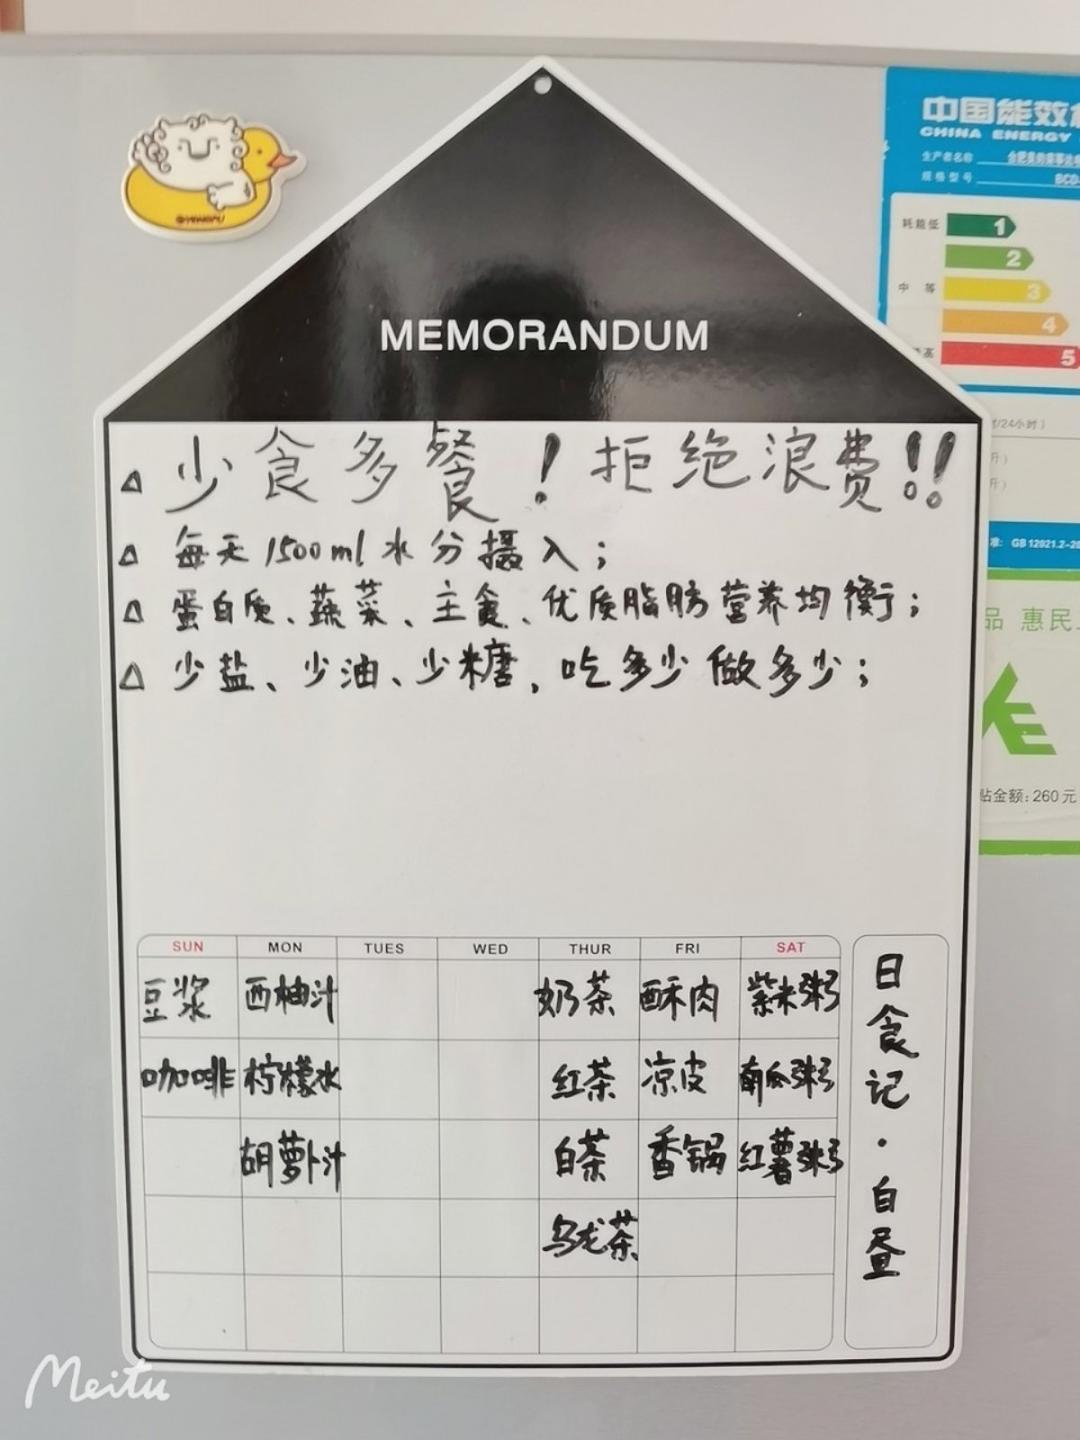 中国能效标
CHINA ENERGY
生产者名称
规格型号
BCD-
耗能低
1
2
中 等
3
4
高
5
MEMORANDUM
/24小时）
升）
升）
△ 少食多餐！拒绝浪费!!
△ 每天1500ml水分摄入；
准： GB 12021.2-20
△ 蛋白质、蔬菜、主食、优质脂肪营养均衡；
品 惠民
△ 少盐、少油、少糖，吃多少做多少；
贴金额：260元
SUN MON TUES WED THUR FRI SAT
豆浆 西柚汁 奶茶 酥肉 紫米粥
咖啡 柠檬水 红茶 凉皮 南瓜粥
胡萝卜汁 白茶 香锅 红薯粥
乌龙茶
日食记·白昼
Meitu